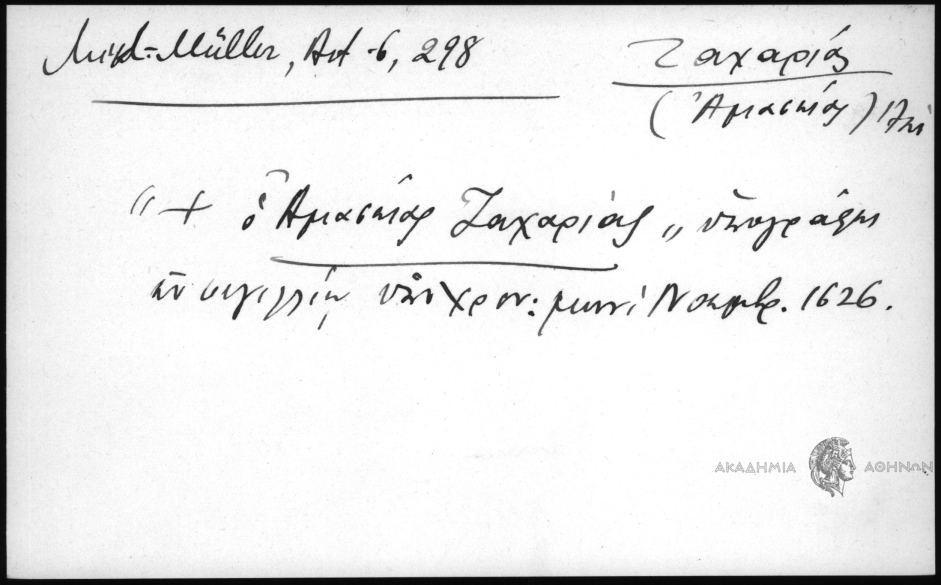 Mikl.-Müller, Act. 6, 298
Ζαχαρίας
(Ἀμασείας)
"+ ὁ Ἀμασείας Ζαχαρίας" ὑπογράφει
ἐν σιγιλλίῳ ὑπὸ χρον: μηνὶ Νοεμβρ. 1626.
ΑΚΑΔΗΜΙΑ ΑΘΗΝΩΝ